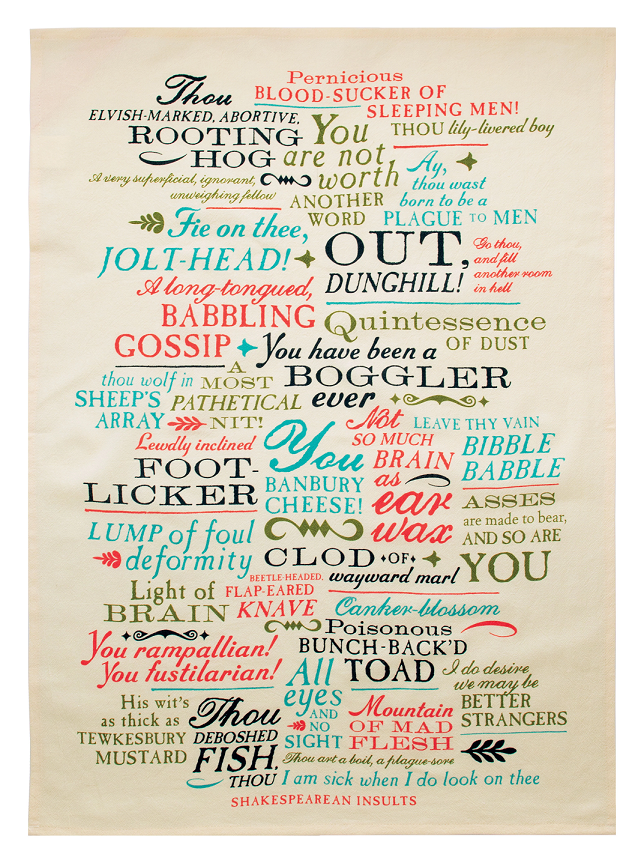 Thou
ELVISH-MARKED, ABORTIVE,
ROOTING
HOG
Pernicious
BLOOD-SUCKER OF
SLEEPING MEN!
You
are not
worth
ANOTHER
WORD
THOU lily-livered boy
A very superficial, ignorant,
unweighing fellow
Ay,
thou wast
born to be a
PLAGUE TO MEN
Fie on thee,
JOLT-HEAD!
OUT,
DUNGHILL!
Go thou,
and fill
another room
in hell
A long-tongued,
BABBLING
GOSSIP
Quintessence
OF DUST
You have been a
BOGGLER
ever
thou wolf in
SHEEP'S
ARRAY
A
MOST
PATHETICAL
NIT!
Not
SO MUCH
BRAIN
as
ear
wax
LEAVE THY VAIN
BIBBLE
BABBLE
Lewdly inclined
FOOT-
LICKER
You
BANBURY
CHEESE!
ASSES
are made to bear,
AND SO ARE
YOU
LUMP of foul
deformity
CLOD OF
wayward marl
BEETLE-HEADED,
FLAP-EARED
KNAVE
Light of
BRAIN
Canker-blossom
Poisonous
BUNCH-BACK'D
TOAD
You rampallian!
You fustilarian!
All
eyes
AND
NO
SIGHT
I do desire
we may be
BETTER
STRANGERS
His wit's
as thick as
TEWKESBURY
MUSTARD
Thou
DEBOSHED
FISH,
THOU
Mountain
OF MAD
FLESH
Thou art a boil, a plague-sore
I am sick when I do look on thee
SHAKESPEAREAN INSULTS